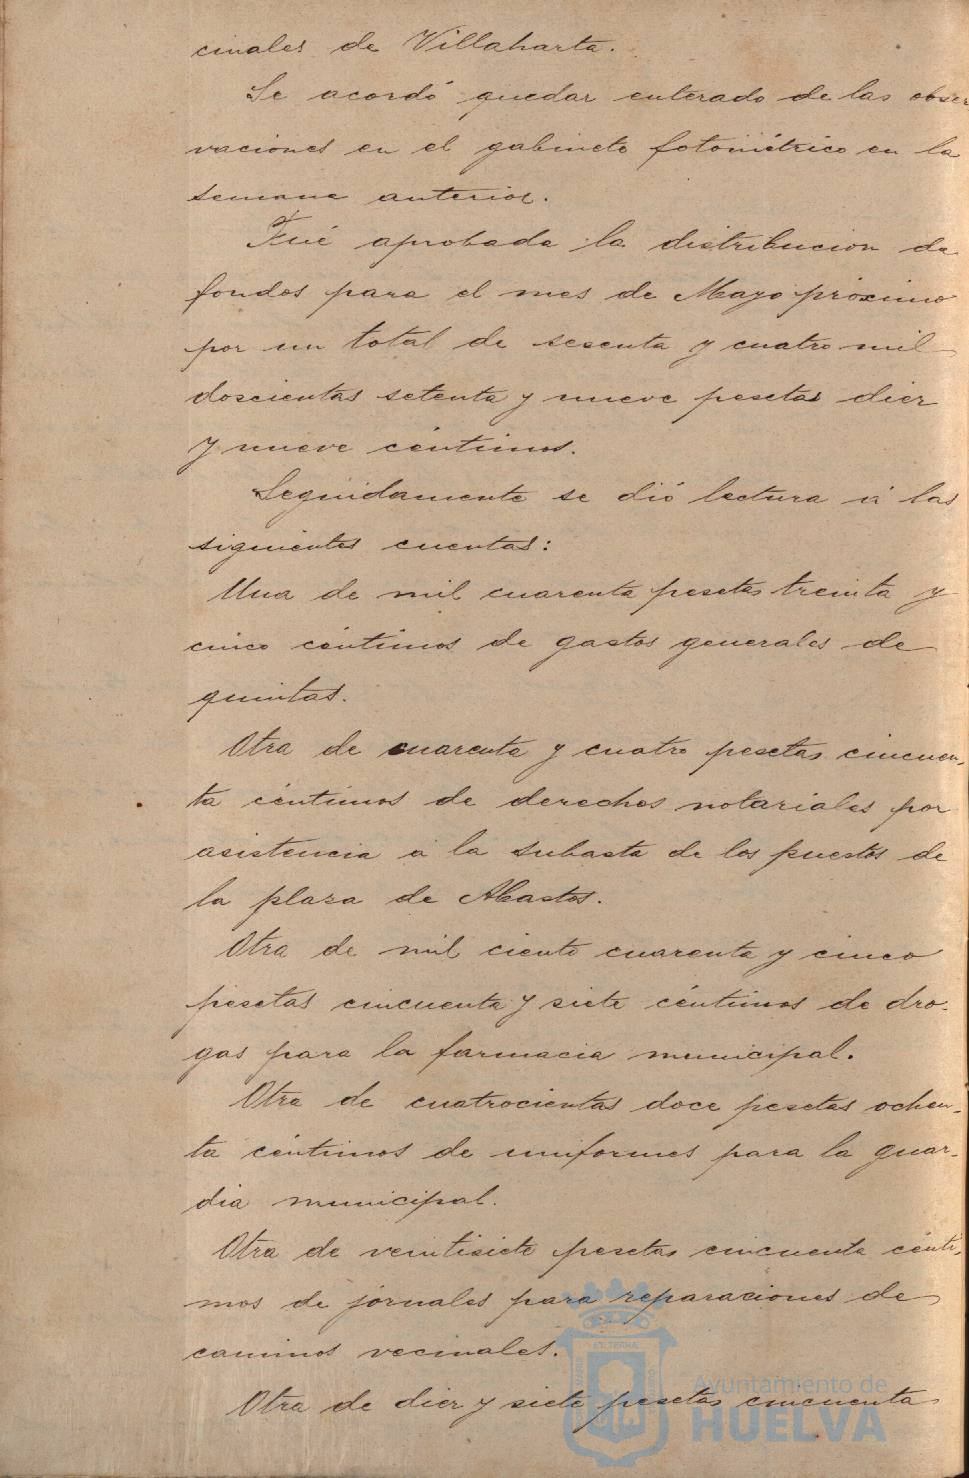 cinales de Villaharta.
Se acordó quedar enterado de las obser
vaciones en el gabinete fotométrico en la
semana anterior.
Fué aprobada la distribucion de
fondos para el mes de Mayo próximo
por un total de sesenta y cuatro mil
doscientas setenta y nueve pesetas diez
y nueve céntimos.
Seguidamente se dió lectura á las
siguientes cuentas:
Una de mil cuarenta pesetas treinta y
cinco céntimos de gastos generales de
quintas.
Otra de cuarenta y cuatro pesetas cincuen-
ta céntimos de derechos notariales por
asistencia á la subasta de los puestos de
la plaza de Abastos.
Otra de mil ciento cuarenta y cinco
pesetas cincuenta y siete céntimos de dro-
gas para la farmacia municipal.
Otra de cuatrocientas doce pesetas ochen-
ta céntimos de uniformes para la guar-
dia municipal.
Otra de veintisiete pesetas cincuenta cénti-
mos de jornales para reparaciones de
caminos vecinales.
Otra de diez y siete pesetas cincuenta
Ayuntamiento de
HUELVA